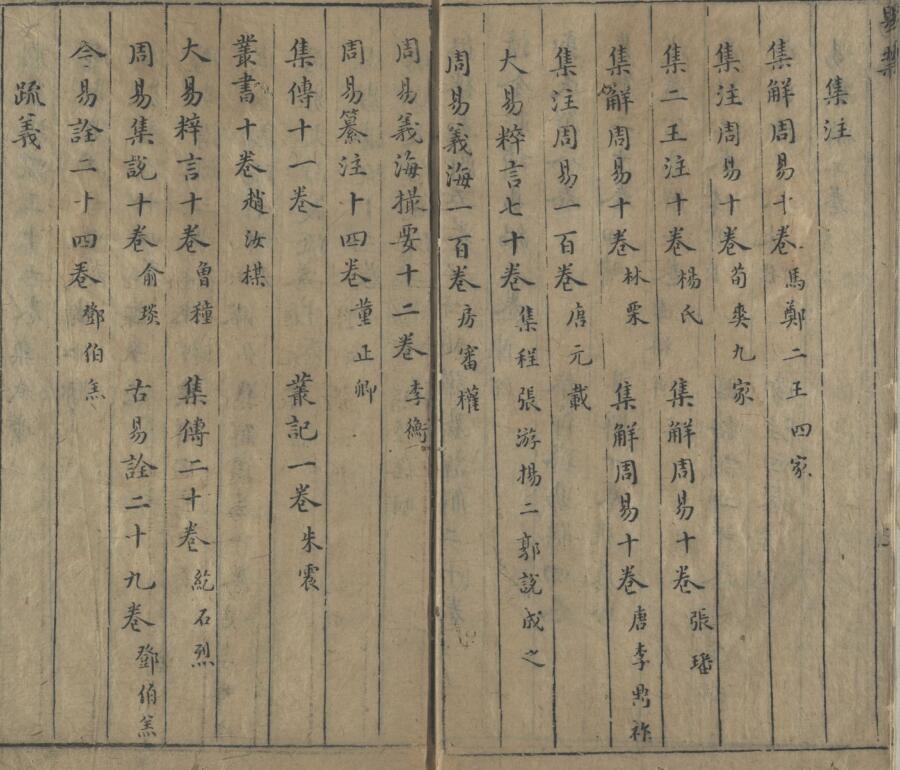 集注
集解周易十卷 馬鄭二王四家
集注周易十卷 荀爽九家
集二王注十卷 楊氏 集解周易十卷 張璠
集解周易十卷 林栗 集解周易十卷 唐李鼎祚
集注周易一百卷 唐元載
大易粹言七十卷 集程張游揚二郭說成之
周易義海一百卷 房審權
周易義海撮要十二卷 李衡
周易纂注十四卷 董正卿
集傳十一卷 叢記一卷 朱震
叢書十卷 趙汝楳
大易粹言十卷 曾種 集傳二十卷 紇石烈
周易集説十卷 俞琰 古易詮二十九卷 鄧伯羔
今易詮二十四卷 鄧伯羔
疏義